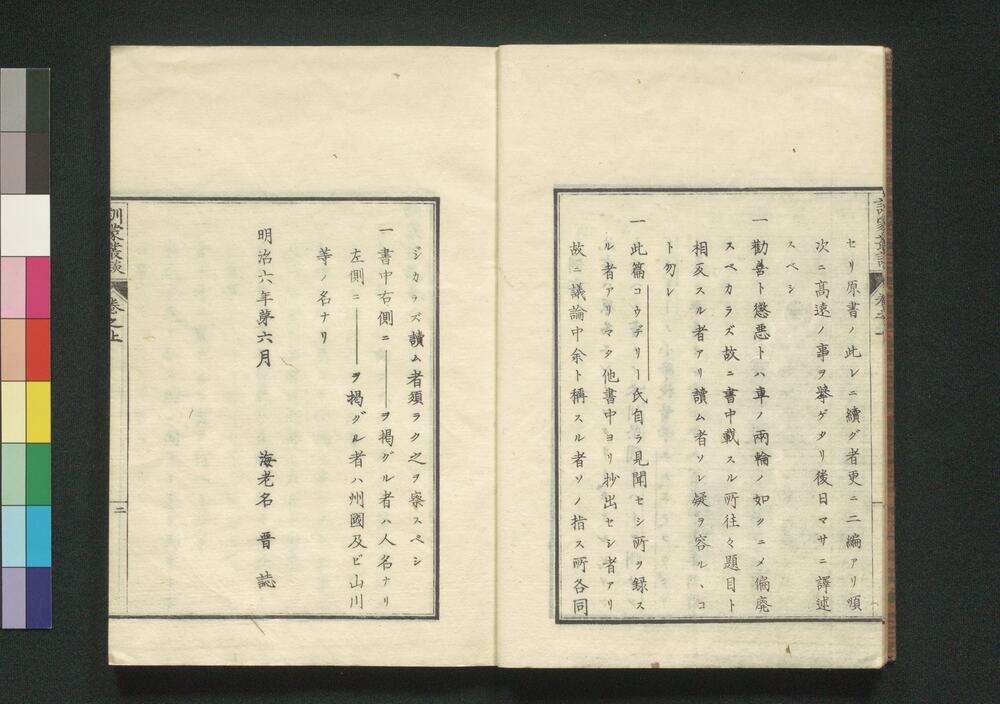 セリ原書ノ此レニ續グ者更ニ二編アリ順
次ニ高遠ノ事ヲ擧ゲタリ後日マサニ譯述
スベシ
一勸善ト懲悪トハ車ノ兩輪ノ如クニメ偏廢
スベカラズ故ニ書中載スル所往々題目ト
相反スル者アリ讀ム者ソレ疑ヲ容ルヽコ
ト勿レ
一此篇コウデリー氏自ラ見聞セシ所ヲ録ス
ル者アリマタ他書中ヨリ抄出セシ者アリ
故ニ議論中余ト稱スル者ソノ指ス所各同
ジカラズ讀ム者須ラク之ヲ察スベシ
一書中右側ニ――ヲ掲グル者ハ人名ナリ
左側ニ――ヲ掲グル者ハ州國及ビ山川
等ノ名ナリ
明治六年第六月 海老名晋誌
訓蒙叢談 巻之上 二